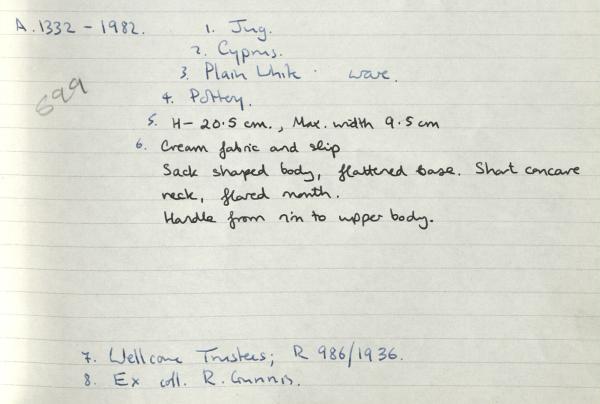 A.1332 - 1982. 1. Jug.
2. Cyprus.
3. Plain White ware.
699
4. Pottery.
5. H - 20.5 cm., Max. width 9.5 cm
6. Cream fabric and slip
Sack shaped body, flattened base. Short concave
neck, flared mouth.
Handle from rim to upper body.
7. Wellcome Trustees; R 986/1936.
8. Ex coll. R. Gunnis.